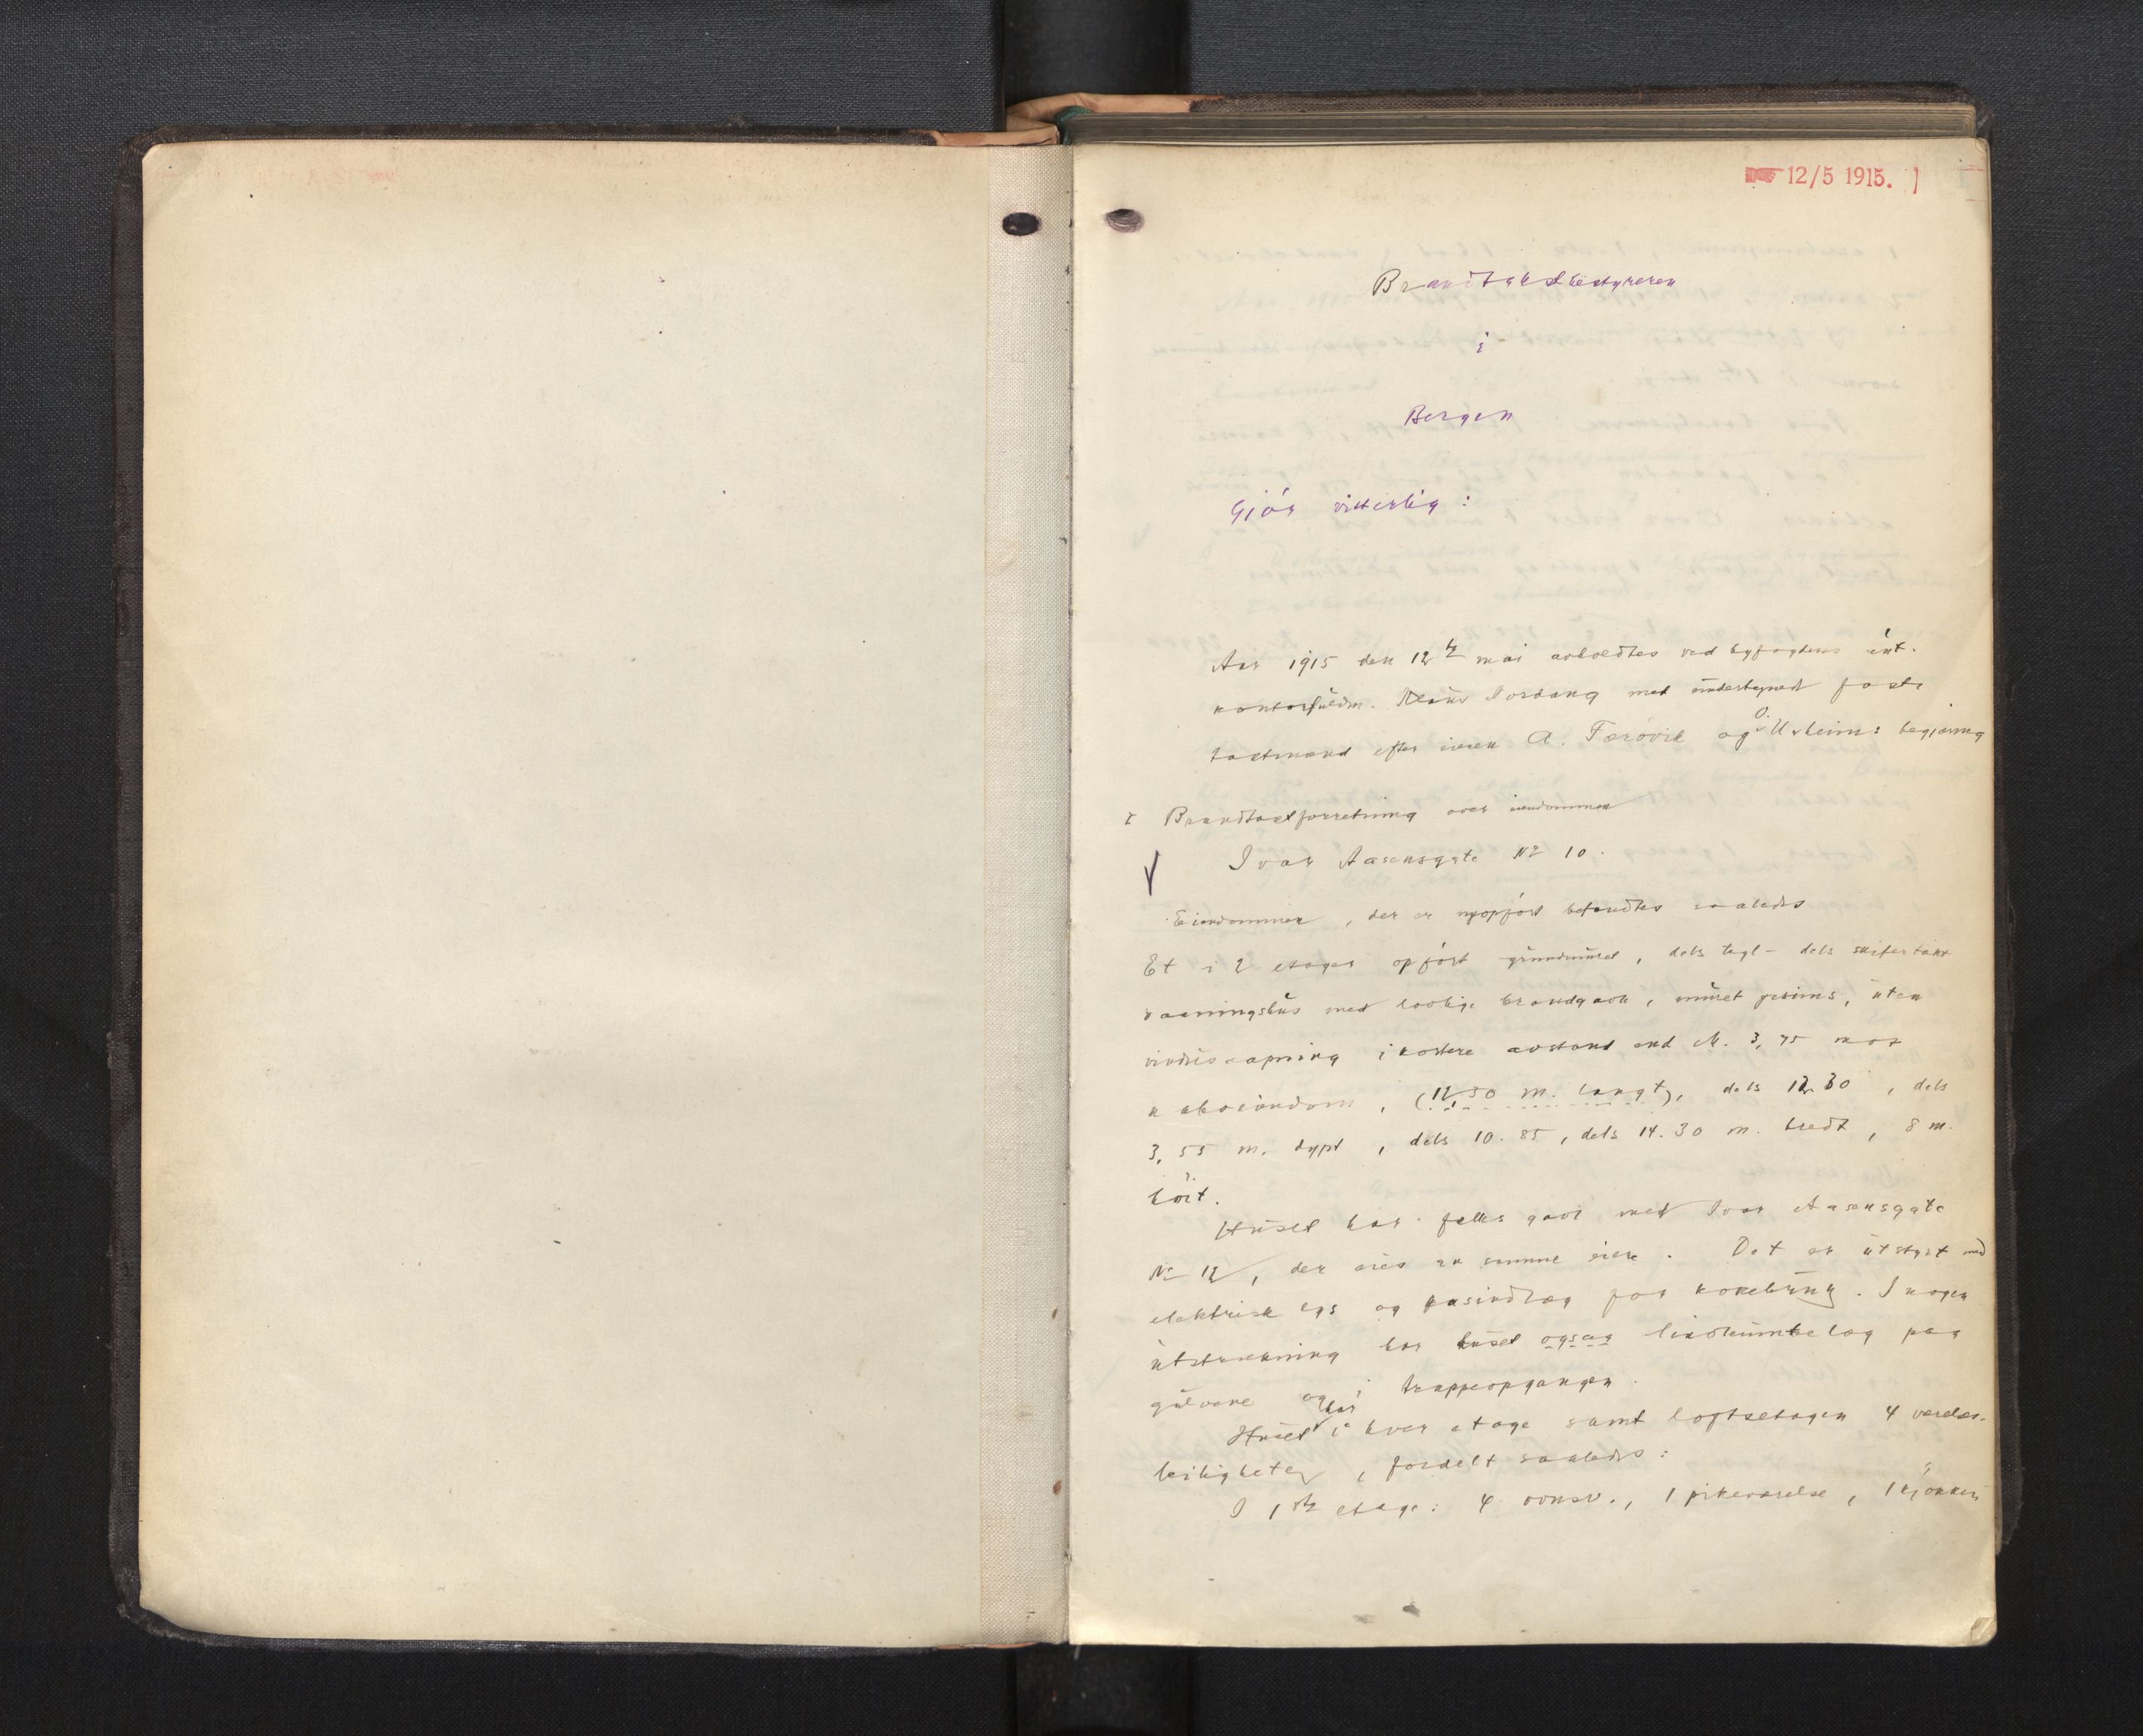 12/5 1915. 1
Brandtakstbestyreren
i
Bergen
Gjør vitterlig:
Aar 1915 den 12te mai avholdtes ved byfogdens aut.
kontorfuldm. Nordang med undertegnede faste
takstmænd efter eieren A. Færøvik og O. Urheims begjæring
Brandtakstforretning over eiendommen
Ivar Aasensgate No 10.
Eiendommen, der er nyopført befandtes saaledes
Et i 2 etager opført grundmuret, dels tegl- dels skifertækt
vaaningshus med lovlige brandgavle, muret gesims, uten
vindusaapning i kortere avstand end M. 3,75 mot
naboeiendom, (12.50 m. langt), dels 12.30, dels
3,55 m. dypt, dels 10.85, dels 14.30 m. bredt, 8 m.
høit.
Huset har fælles gavl med Ivar Aasensgate
No 12, der eies av samme eiere. Det er utstyrt med
elektrisk lys og gasindlæg for kokebruk. I nogen
utstrækning har huset ogsaa linoleumbelæg paa
gulvene og i trappeopgangen.
Huset har i hver etage samt loftsetagen 4 værelses-
leiligheter, fordelt saaledes:
I 1ste etage: 4 ovnsv., 1 pikeværelse, 1 kjøkken